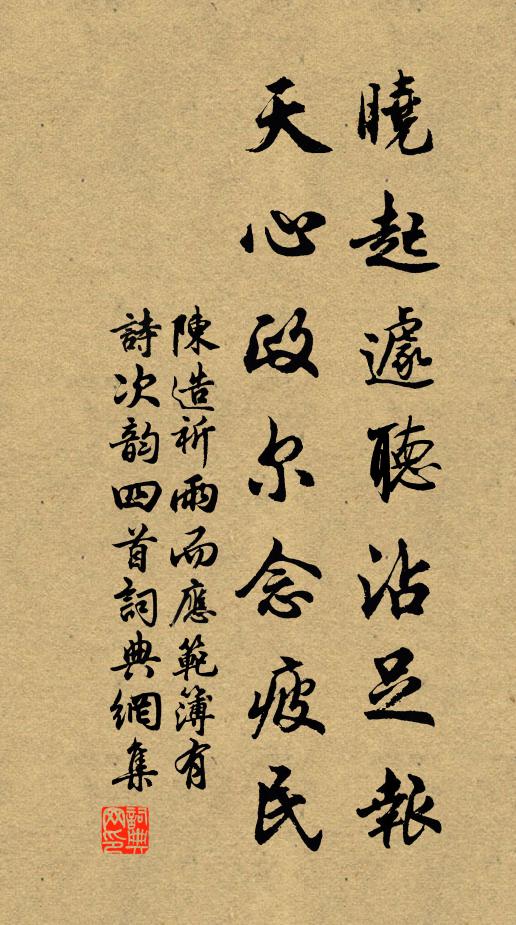 曉起遽聽沾足報
天心政尔念疲民
陳造祈雨而應範簿有
詩次韵四首詞典網集
詞典網印